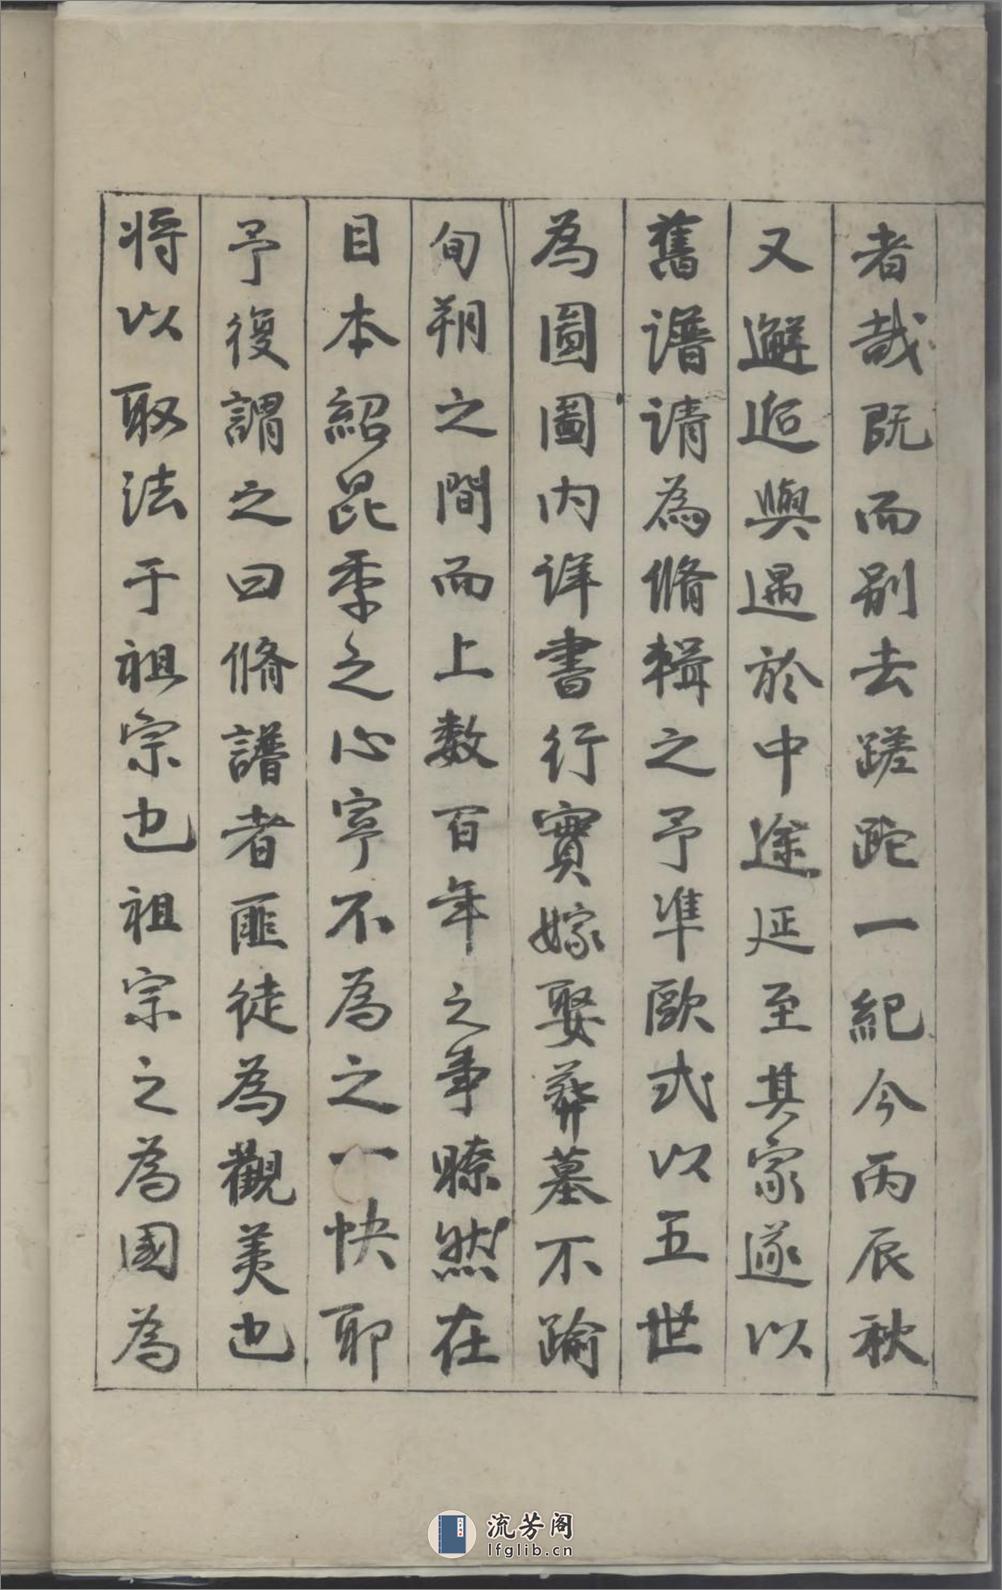 者哉既而别去蹉跎一紀今丙辰秋
又邂逅與遇於中途延至其家遂以
舊譜请為脩輯之予凖歐式以五世
為圖圖内详書行實嫁娶葬墓不踰
旬朔之間而上數百年之事瞭然在
目本紹昆季之心寧不為之一快耶
予復謂之曰脩譜者匪徒為觀美也
将以取法于祖宗也祖宗之為國為
流芳阁
lfglib.cn